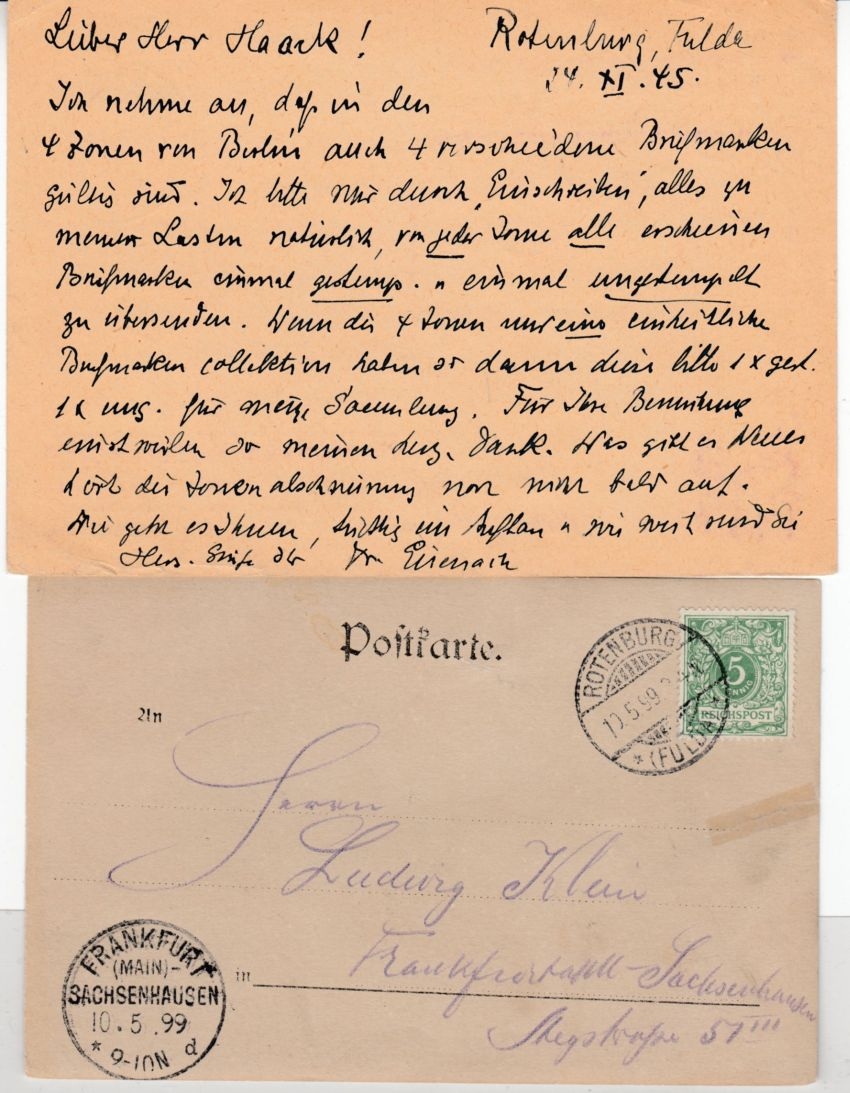 Lieber Herr Haack !
Rotenburg, Fulda
24. XI. 45.
Ich nehme an, daß in den
4 Zonen von Berlin auch 4 verschiedene Briefmarken
gültig sind. Ich bitte nur durch „Einschreiben", alles zu
meinen Lasten natürlich, von jeder Zone alle erschienen
Briefmarken einmal gestemp. u einmal ungestempelt
zu übersenden. Wenn die 4 Zonen nur eine einheitliche
Briefmarken collektion haben so dann diese bitte 1 x gest.
1 x ung. für meine Sammlung. Für Ihre Bemühung
einstweilen so meinen herz. Dank. Was gibt es Neues
hört die Zonenabschnürung noch nicht bald auf.
Wie geht es Ihnen, tüchtig im Aufbau u wie weit sind Sie
Herz. Grüße Ihr Dr. Eisenach
Postkarte.
ROTENBURG
10.5.99
* (FULDA)
5
PFENNIG
REICHSPOST
An
Herrn
Ludwig Klein
in Frankfurt a/M - Sachsenhausen
Stegstraße 51 III
FRANKFURT
(MAIN)-
SACHSENHAUSEN
10.5.99
* 9-10N d